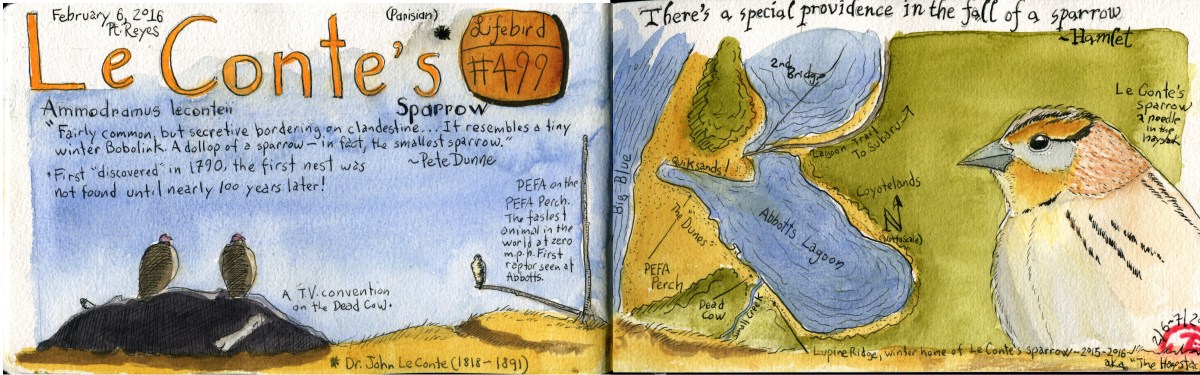 February 6, 2016
Pt. Reyes
(Parisian)
Le Conte's *
Lifebird
#499
Ammodramus leconteii
Sparrow
"Fairly common, but secretive bordering on clandestine... It resembles a tiny
winter Bobolink. A dollop of a sparrow — in fact, the smallest sparrow."
~Pete Dunne
• First "discovered" in 1790, the first nest was
not found until nearly 100 years later!
PEFA on the
PEFA Perch.
The fastest
animal in the
world at zero
m.p.h. First
raptor seen at
Abbotts.
A T.V. convention
on the Dead Cow.
* Dr. John Le Conte (1818-1891)
There's a special providence in the fall of a sparrow
~Hamlet
2nd
Bridge
Lagoon Trail
To Subaru →
Quiksands!
Big Blue
The "Dunes"
Abbotts Lagoon
Coyotelands
N
(Nottascale)
PEFA
Perch
Dead
Cow
Small Creek
Le Conte's
sparrow
a needle
in the
haystack
Lupine Ridge, winter home of Le Conte's Sparrow - 2015-2016
aka "The Haysta
2/6-7/20